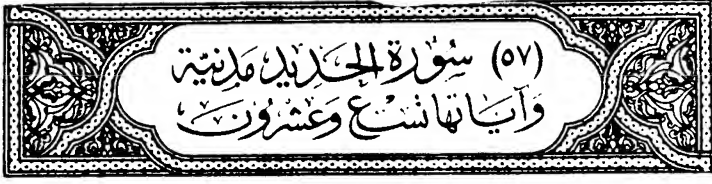 (٥٧) سُوْرَة الحَدِيد مَدَنِيَّة
وَآيَاتهَا تِسْع وَعِشْرُونَ